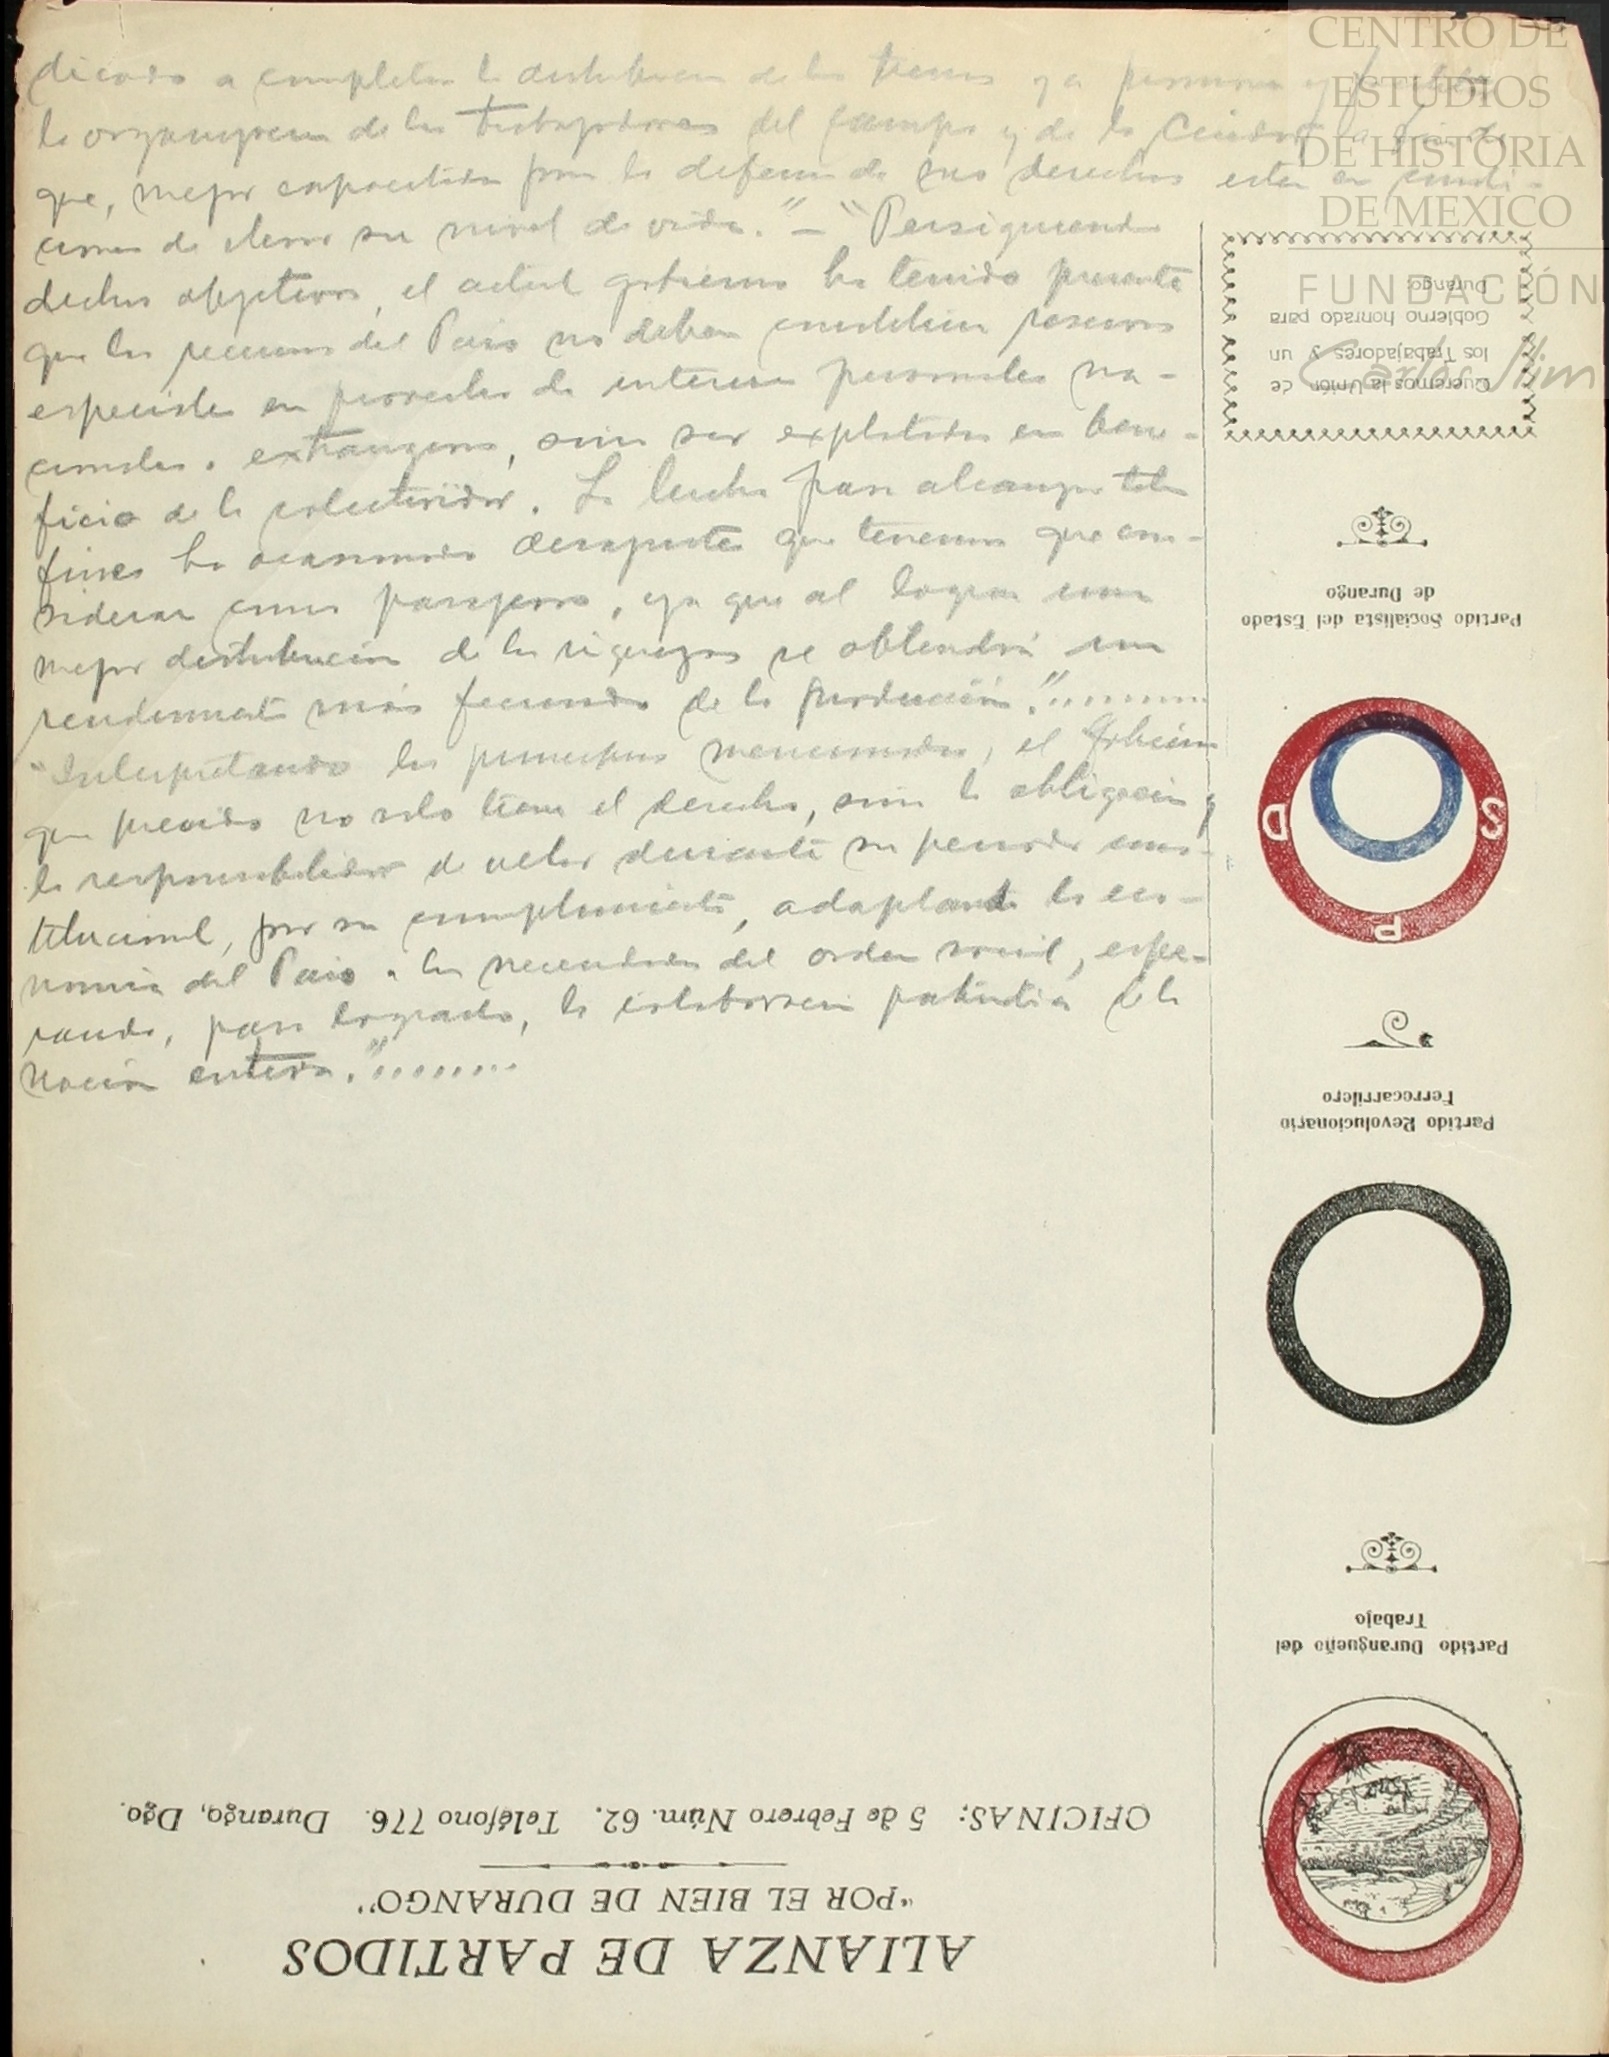 dicado a completar la distribución de las tierras y a promover y
la organización de los trabajadores del campo y de la Ciudad, a fin de
que, mejor capacitados para la defensa de sus derechos estén en condi-
ciones de elevar su nivel de vida." — "Persiguiendo
dichos objetivos, el actual gobierno ha tenido presente
que los recursos del País no deben constituir reservas
especiales en provecho de intereses personales na-
cionales o extranjeros, sino ser explotados en bene-
ficio de la colectividad. La lucha para alcanzar tales
fines ha ocasionado desajustes que tenemos que con-
siderar como pasajeros, ya que al lograr una
mejor distribución de las riquezas se obtendrá un
rendimiento más fecundo de la producción."........
"Interpretando los principios mencionados, el Gobierno
que presido no solo tiene el derecho, sino la obligación y
la responsabilidad de velar durante su periodo cons-
titucional, por su cumplimiento, adaptando la eco-
nomía del País a las necesidades del orden social, espe-
rando, para lograrlo, la colaboración patriótica de la
nación entera."........
CENTRO DE
ESTUDIOS
DE HISTORIA
DE MEXICO
FUNDACIÓN
Carlos Slim
ALIANZA DE PARTIDOS
"POR EL BIEN DE DURANGO"
OFICINAS: 5 de Febrero Núm. 62. Teléfono 776. Durango, Dgo.
Partido Durangueño del
Trabajo
Partido Revolucionario
Ferrocarrilero
P
S
D
Partido Socialista del Estado
de Durango
Queremos la Unión de
los Trabajadores y un
Gobierno honrado para
Durango.